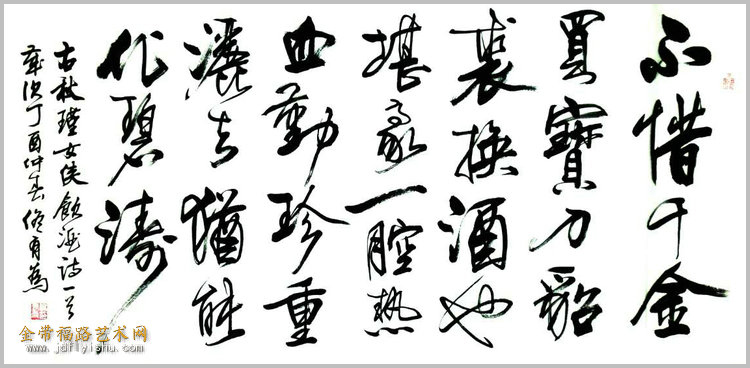 不惜千金
買寶刀貂
裘換酒也
堪豪一腔熱
血勤珍重
灑去猶能
化碧濤
右秋瑾女侠飲酒诗一首
歲次丁酉仲春
金带福路艺术网
www.jdflyishu.com